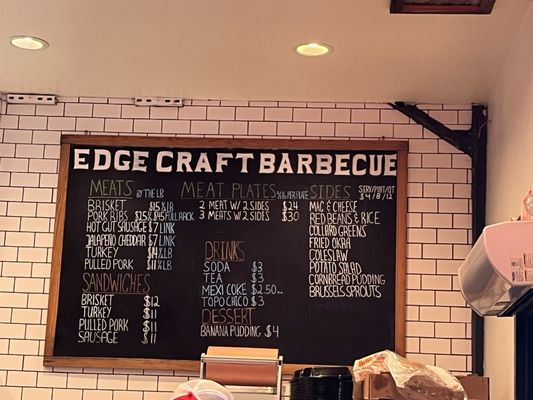 EDGE CRAFT BARBECUE
MEATS BY THE LB
BRISKET $15 ½ LB
PORK RIBS $25 ½ $45 FULL RACK
HOT GUT SAUSAGE $7 LINK
JALAPENO CHEDDAR $7 LINK
TURKEY $11 ½ LB
PULLED PORK $11 ½ LB
SANDWICHES
BRISKET $12
TURKEY $11
PULLED PORK $11
SAUSAGE $11
MEAT PLATES PER PLATE
2 MEAT W/ 2 SIDES $24
3 MEATS W/ 2 SIDES $30
DRINKS
SODA $3
TEA $3
MEXI COKE $2.50
TOPO CHICO $3
DESSERT
BANANA PUDDING $4
SIDES SERV/PINT/QT
4/8/12
MAC & CHEESE
RED BEANS & RICE
COLLARD GREENS
FRIED OKRA
COLESLAW
POTATO SALAD
CORNBREAD PUDDING
BRUSSELS SPROUTS